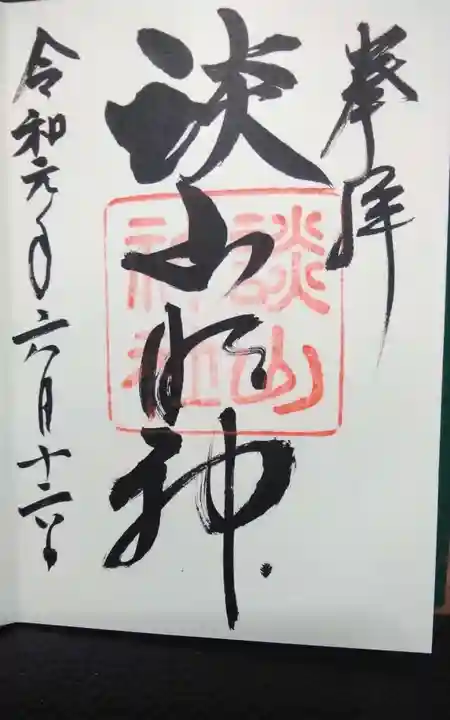 奉拝
談山明神
談山
神社
令和元年六月十二日